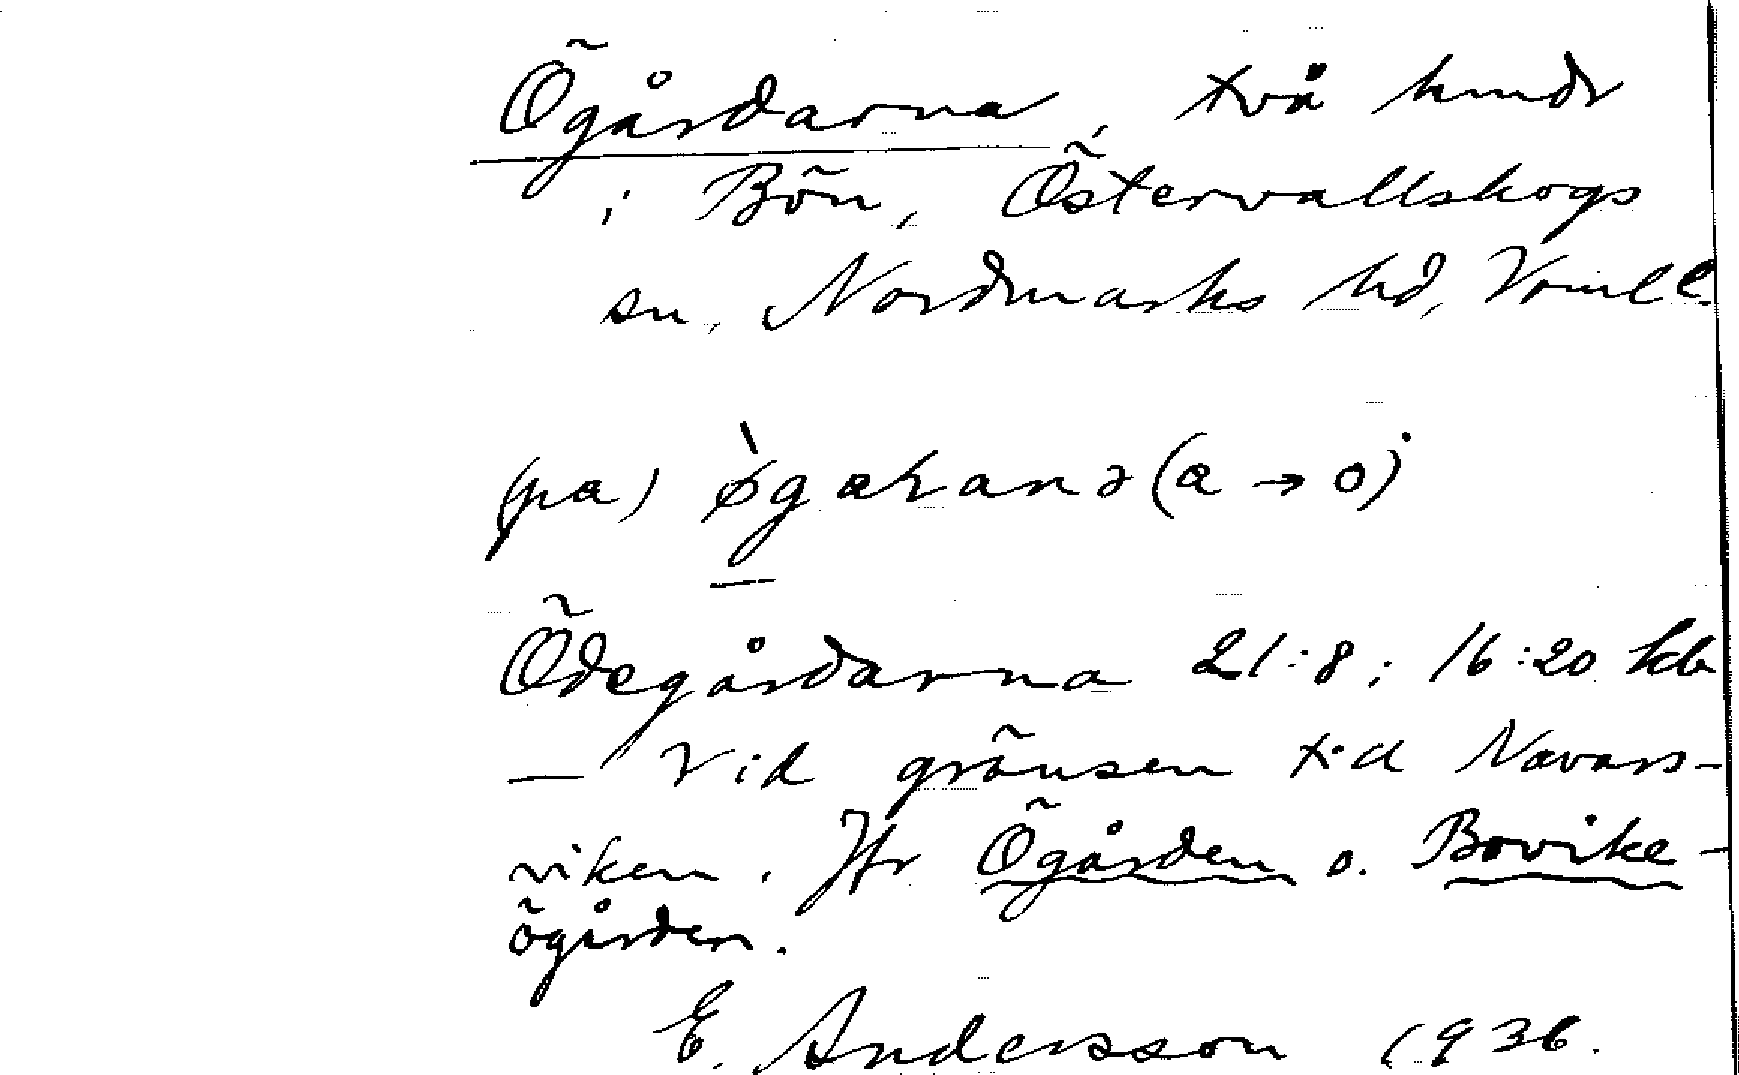 Ögårdarna, två hmdr
i Bön, Östervallskogs
sn, Nordmarks hd, Värml.
(pa) ø̀gaɽanə (a → o)
Ödegårdarna 21:8; 16:20 kb
— Vid gränsen t.d Navars-
viken. Jfr Ögården o. Bovike-
ögården.
E. Andersson 1936.